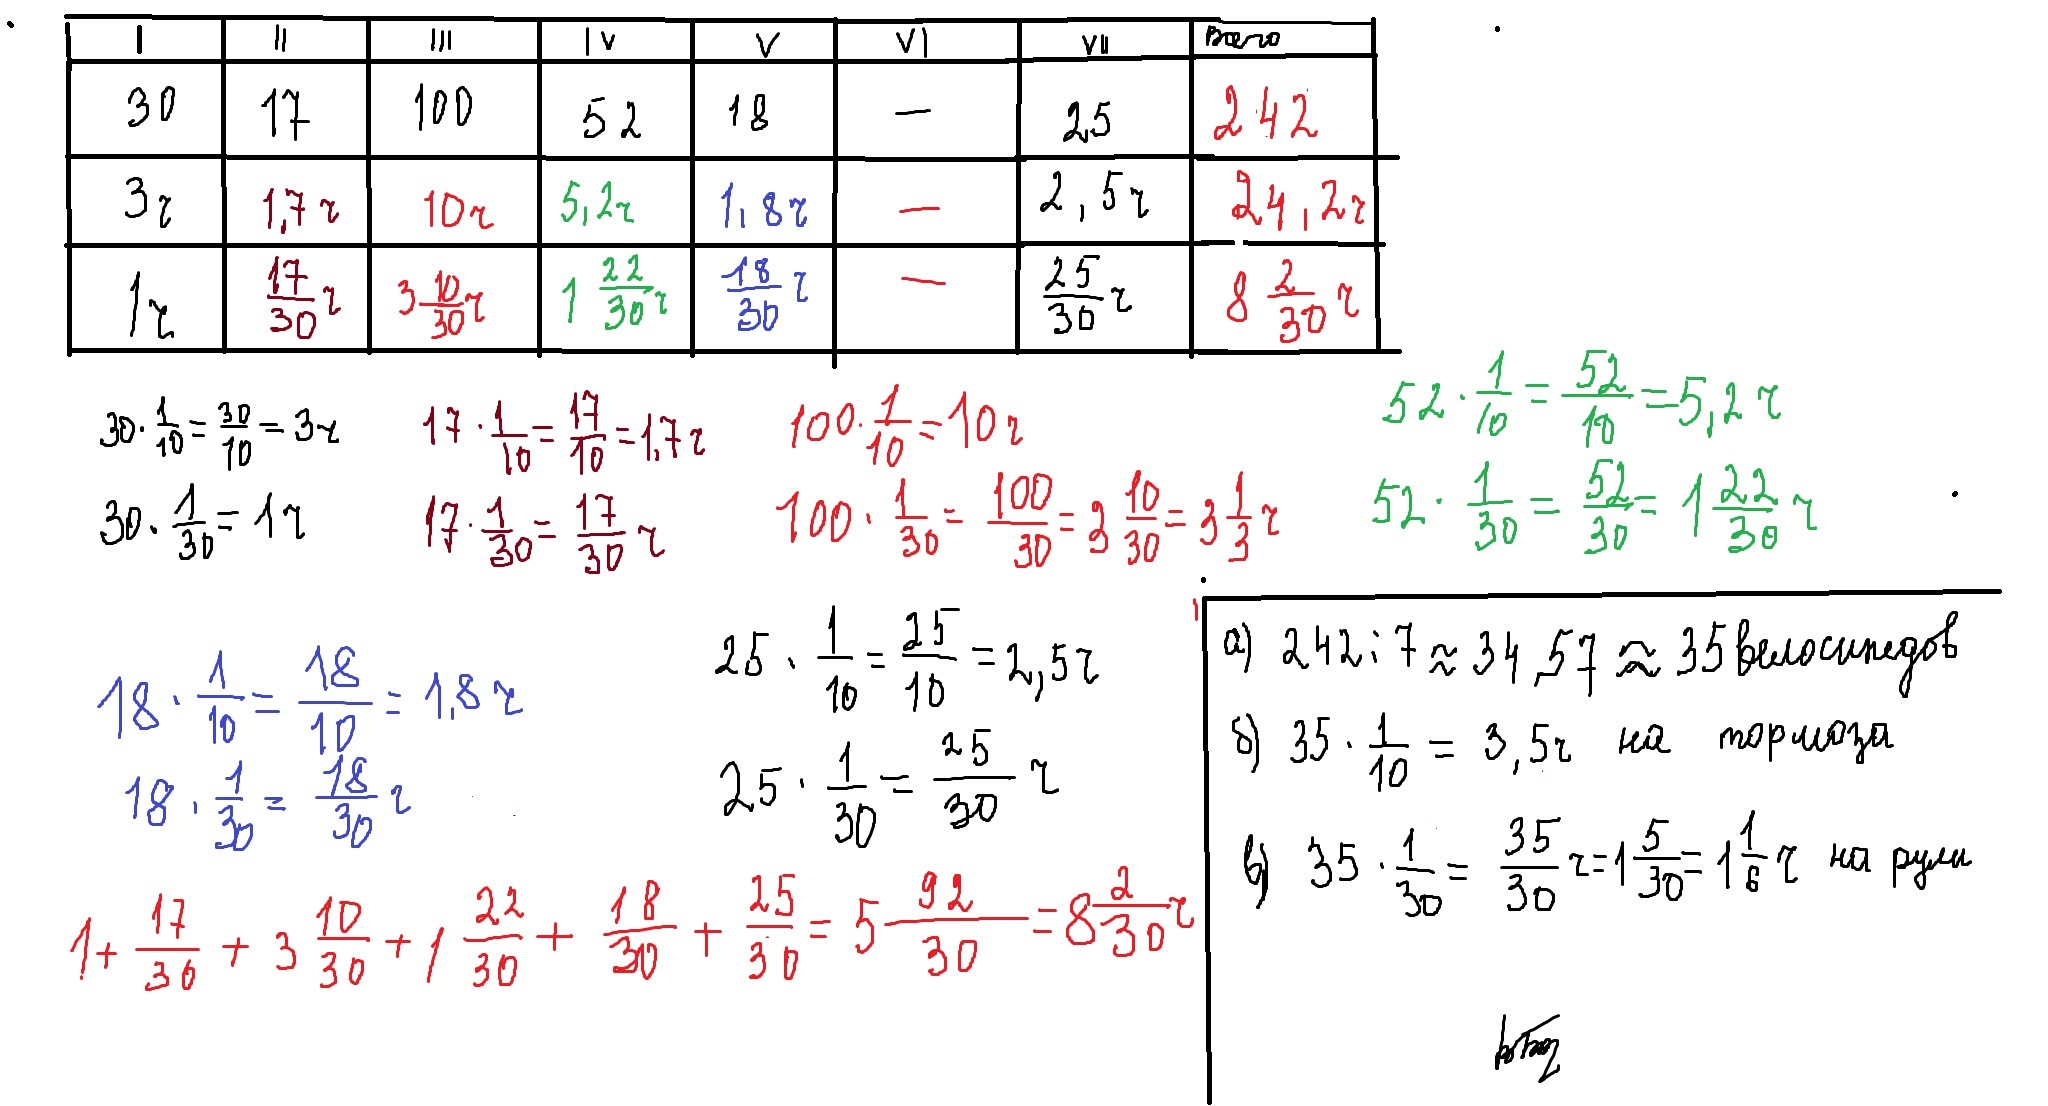 I II III IV V VI VII Всего
30 17 100 52 18 — 25 242
3ч 1,7ч 10ч 5,2ч 1,8ч — 2,5ч 24,2ч
1ч 17/30 ч 3 10/30 ч 1 22/30 ч 18/30 ч — 25/30 ч 8 2/30 ч
30 · 1/10 = 30/10 = 3ч
30 · 1/30 = 1ч
17 · 1/10 = 17/10 = 1,7ч
17 · 1/30 = 17/30 ч
100 · 1/10 = 10ч
100 · 1/30 = 100/30 = 3 10/30 = 3 1/3 ч
52 · 1/10 = 52/10 = 5,2ч
52 · 1/30 = 52/30 = 1 22/30 ч
18 · 1/10 = 18/10 = 1,8ч
18 · 1/30 = 18/30 ч
25 · 1/10 = 25/10 = 2,5ч
25 · 1/30 = 25/30 ч
1 + 17/30 + 3 10/30 + 1 22/30 + 18/30 + 25/30 = 5 92/30 = 8 2/30 ч
а) 242 : 7 ≈ 34,57 ≈ 35 велосипедов
б) 35 · 1/10 = 3,5ч на тормоза
в) 35 · 1/30 = 35/30 ч = 1 5/30 = 1 1/6 ч на рули